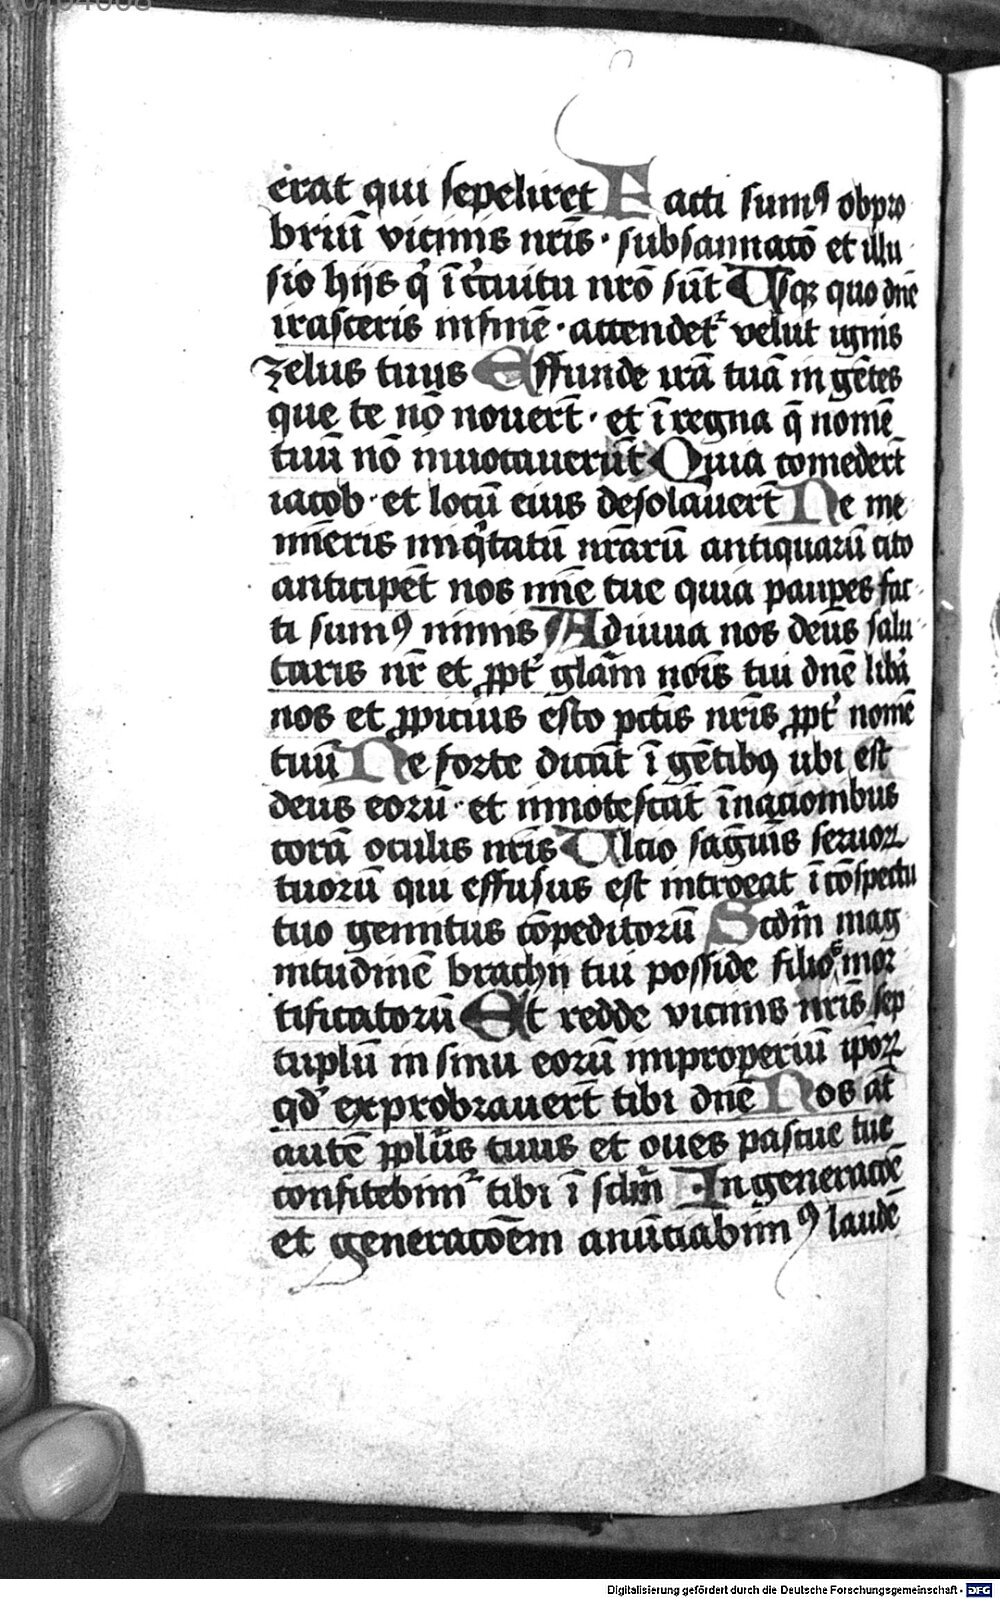 erat qui sepeliret Facti sumꝰ obpro
briū vicinis nr̄is · subsannatō et illu
sio hijs qͥ ī cͥcuitu nrō sūt Usqꝫ quo dn̄e
irasceris in finē · attendet᷑ velut ignis
zelus tuus Effunde irā tuā in gētes
que te nō nouerūt · et ī regna q̄ nomē
tuū nō inuocauerūt Quia comederūt
iacob · et locū eius desolauerūt Ne me
mīeris iniqͥtatū nrārū antiquarū cito
anticipēt nos mīe tue quia paupes fac
ti sumꝰ nimis Adiuua nos deus salu
taris nr̄ et ꝓpt᷑ glām nōis tui dn̄e libā
nos et ꝓpicius esto pctīs nr̄is ꝓpt᷑ nomē
tuū Ne forte dicāt ī gētibꝰ ubi est
deus eorū · et innotescāt ī nacionibus
corā oculis nr̄is Ulcio sāguīs seruoꝝ
tuorū qui effusus est introeat ī cōspectu
tuo gemitus cōpeditorū Scdm̄ mag
nitudinē brachij tui posside filios mor
tificatorū Et redde vicinis nr̄is sep
tuplū in sinu eorū improperiū ipoꝝ
qd᷑ exprobrauerūt tibi dn̄e Nos āt
autē ppl̄us tuus et oues pascue tue
confitebim᷑ tibi ī sclm̄ In generacōe
et generacōem anūciabimꝰ laudē
Digitalisierung gefördert durch die Deutsche Forschungsgemeinschaft - DFG